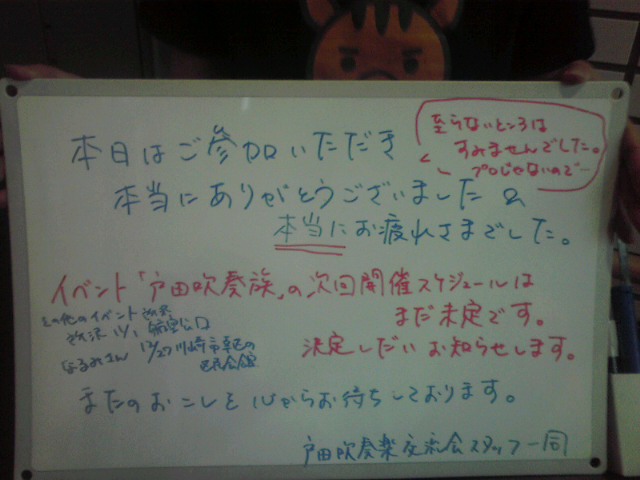 本日はご参加いただき
本当にありがとうございました&
本当にお疲れさまでした。
至らないところは
すみませんでした。
プロじゃないので…
イベント「戸田吹奏族」の次回開催スケジュールは
まだ未定です。
決定しだいお知らせします。
その他のイベント
なるみさん 12/27 川崎市幸区の
またのおこしを心からお待ちしております。
戸田吹奏楽交流会スタッフ一同